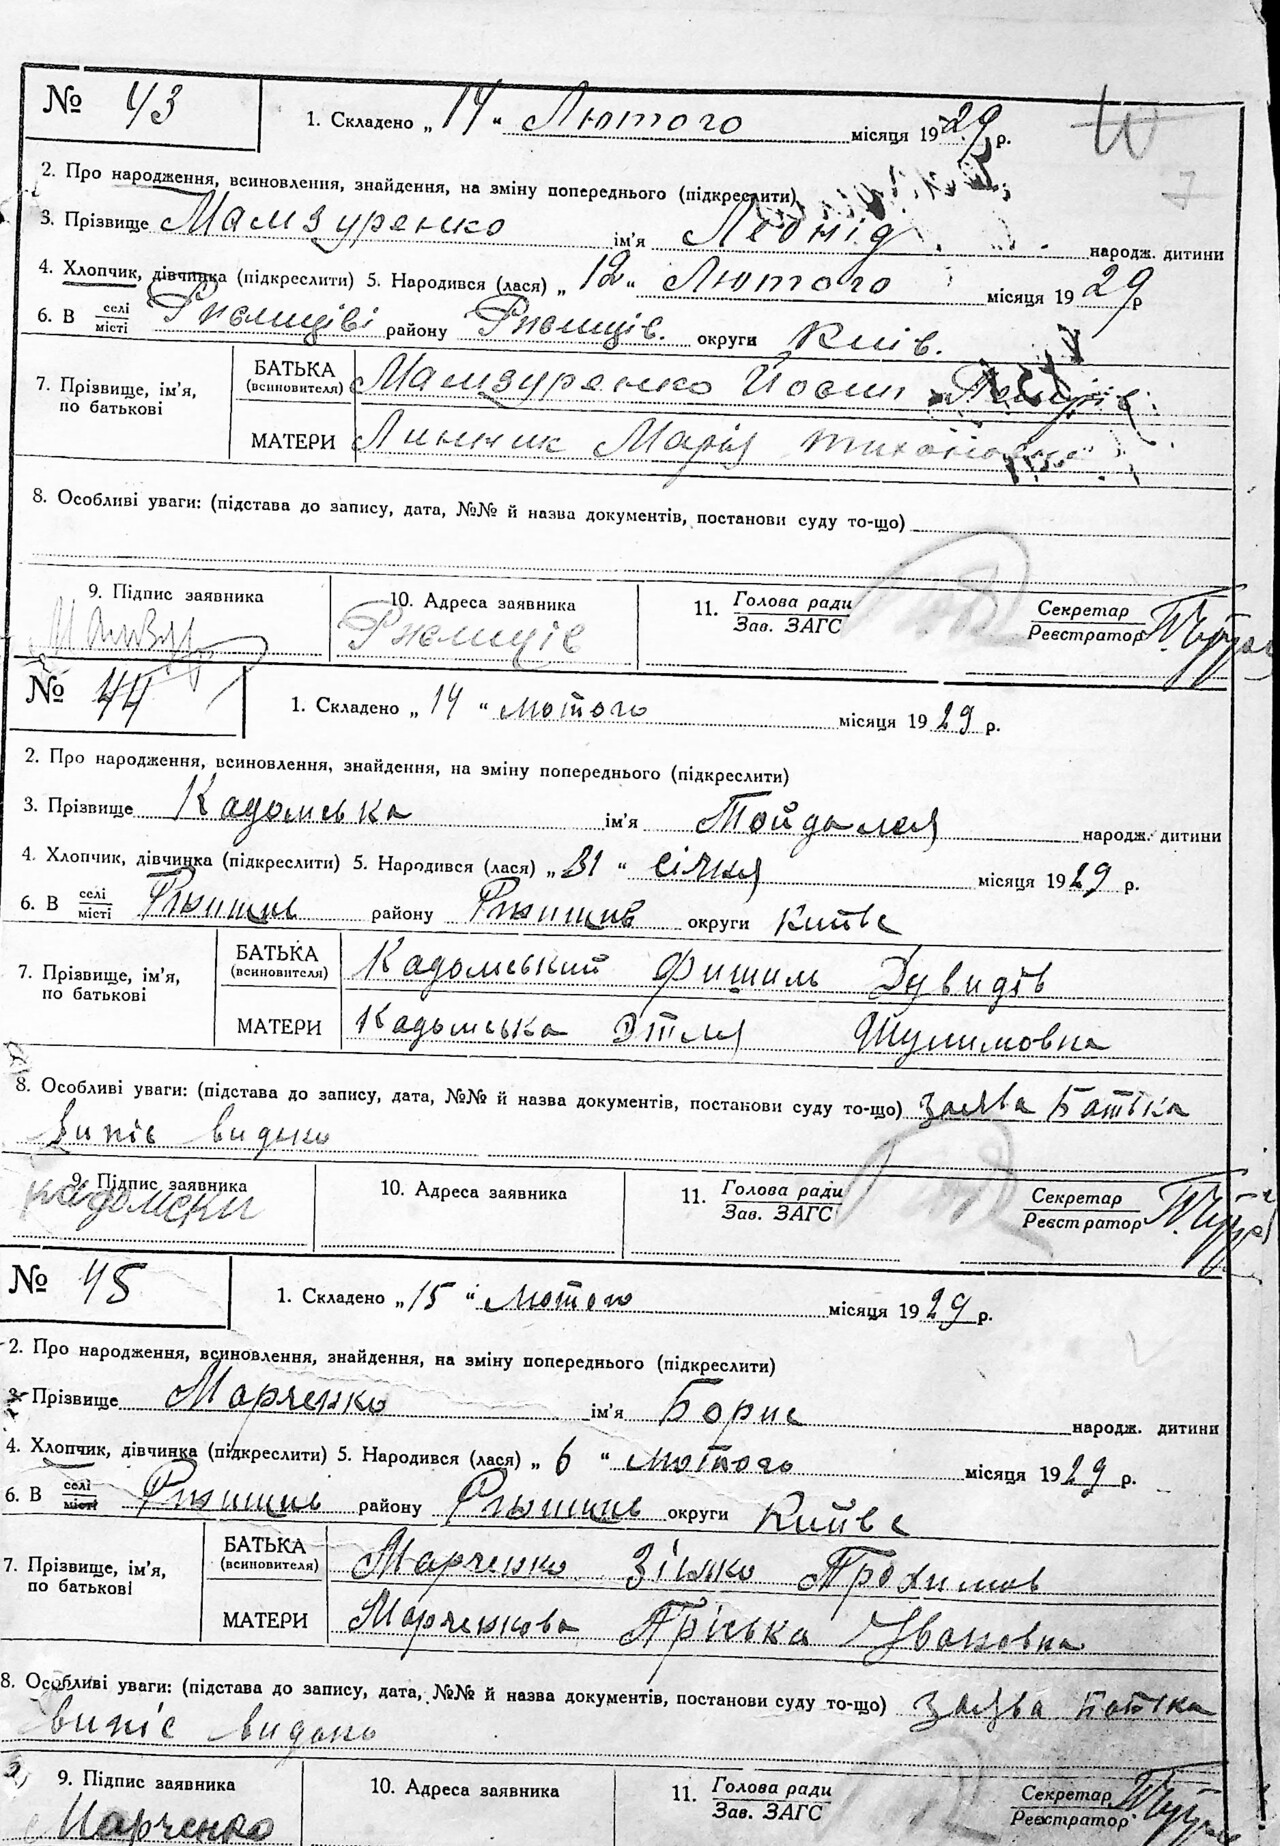 № 43 1. Складено „ 14 “ Лютого місяця 1929 р.
2. Про народження, всиновлення, знайдення, на зміну попереднього (підкреслити)
3. Прізвище Мамзуренко ім'я Леонід народж. дитини
4. Хлопчик, дівчинка (підкреслити) 5. Народився (лася) „ 12 “ Лютого місяця 1929 р
6. В селі/місті Ржищіві району Ржищів. округи Київ.
7. Прізвище, ім'я, по батькові БАТЬКА (всиновителя) Мамзуренко Йосип
МАТЕРИ Линник Марія
8. Особливі уваги: (підстава до запису, дата, №№ й назва документів, постанови суду то-що)
9. Підпис заявника 10. Адреса заявника Ржищів 11. Голова ради/Зав. ЗАГС Секретар/Реєстратор
№ 44 1. Складено „ 14 “ лютого місяця 1929 р.
2. Про народження, всиновлення, знайдення, на зміну попереднього (підкреслити)
3. Прізвище Кадомська ім'я народж. дитини
4. Хлопчик, дівчинка (підкреслити) 5. Народився (лася) „ 31 “ січня місяця 1929 р.
6. В селі/місті Ржищів району Ржищів округи Київс
7. Прізвище, ім'я, по батькові БАТЬКА (всиновителя) Кадомський Фишиль Дувидів
МАТЕРИ Кадомська Этля Шулимовна
8. Особливі уваги: (підстава до запису, дата, №№ й назва документів, постанови суду то-що) заява Батька
випіс видано
9. Підпис заявника Кадомски 10. Адреса заявника 11. Голова ради/Зав. ЗАГС Секретар/Реєстратор
№ 45 1. Складено „ 15 “ лютого місяця 1929 р.
2. Про народження, всиновлення, знайдення, на зміну попереднього (підкреслити)
3. Прізвище Марченко ім'я Борис народж. дитини
4. Хлопчик, дівчинка (підкреслити) 5. Народився (лася) „ 6 “ лютого місяця 1929 р.
6. В селі/місті Ржищів району Ржищів округи Київс
7. Прізвище, ім'я, по батькові БАТЬКА (всиновителя) Марченко Зінько Трохимов
МАТЕРИ Марченкова Пріська Ивановна
8. Особливі уваги: (підстава до запису, дата, №№ й назва документів, постанови суду то-що) заява Батька
випіс видано
9. Підпис заявника Марченко 10. Адреса заявника 11. Голова ради/Зав. ЗАГС Секретар/Реєстратор